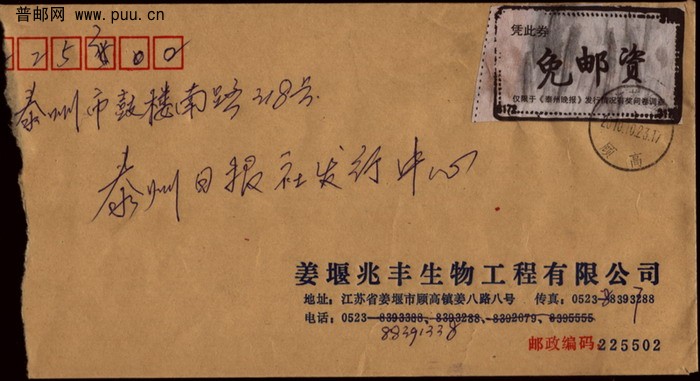 普邮网
www.puu.cn
225300
凭此券
免邮资
仅限于《泰州晚报》发行情况有奖问卷调查
2010.10.23.17
顾高
泰州市鼓楼南路318号
泰州日报社发行中心
姜堰兆丰生物工程有限公司
地址:江苏省姜堰市顾高镇姜八路八号 传真:0523-88393288
7
电话:0523-8393388、8393288、8392079、8395555
88391338
邮政编码:225502